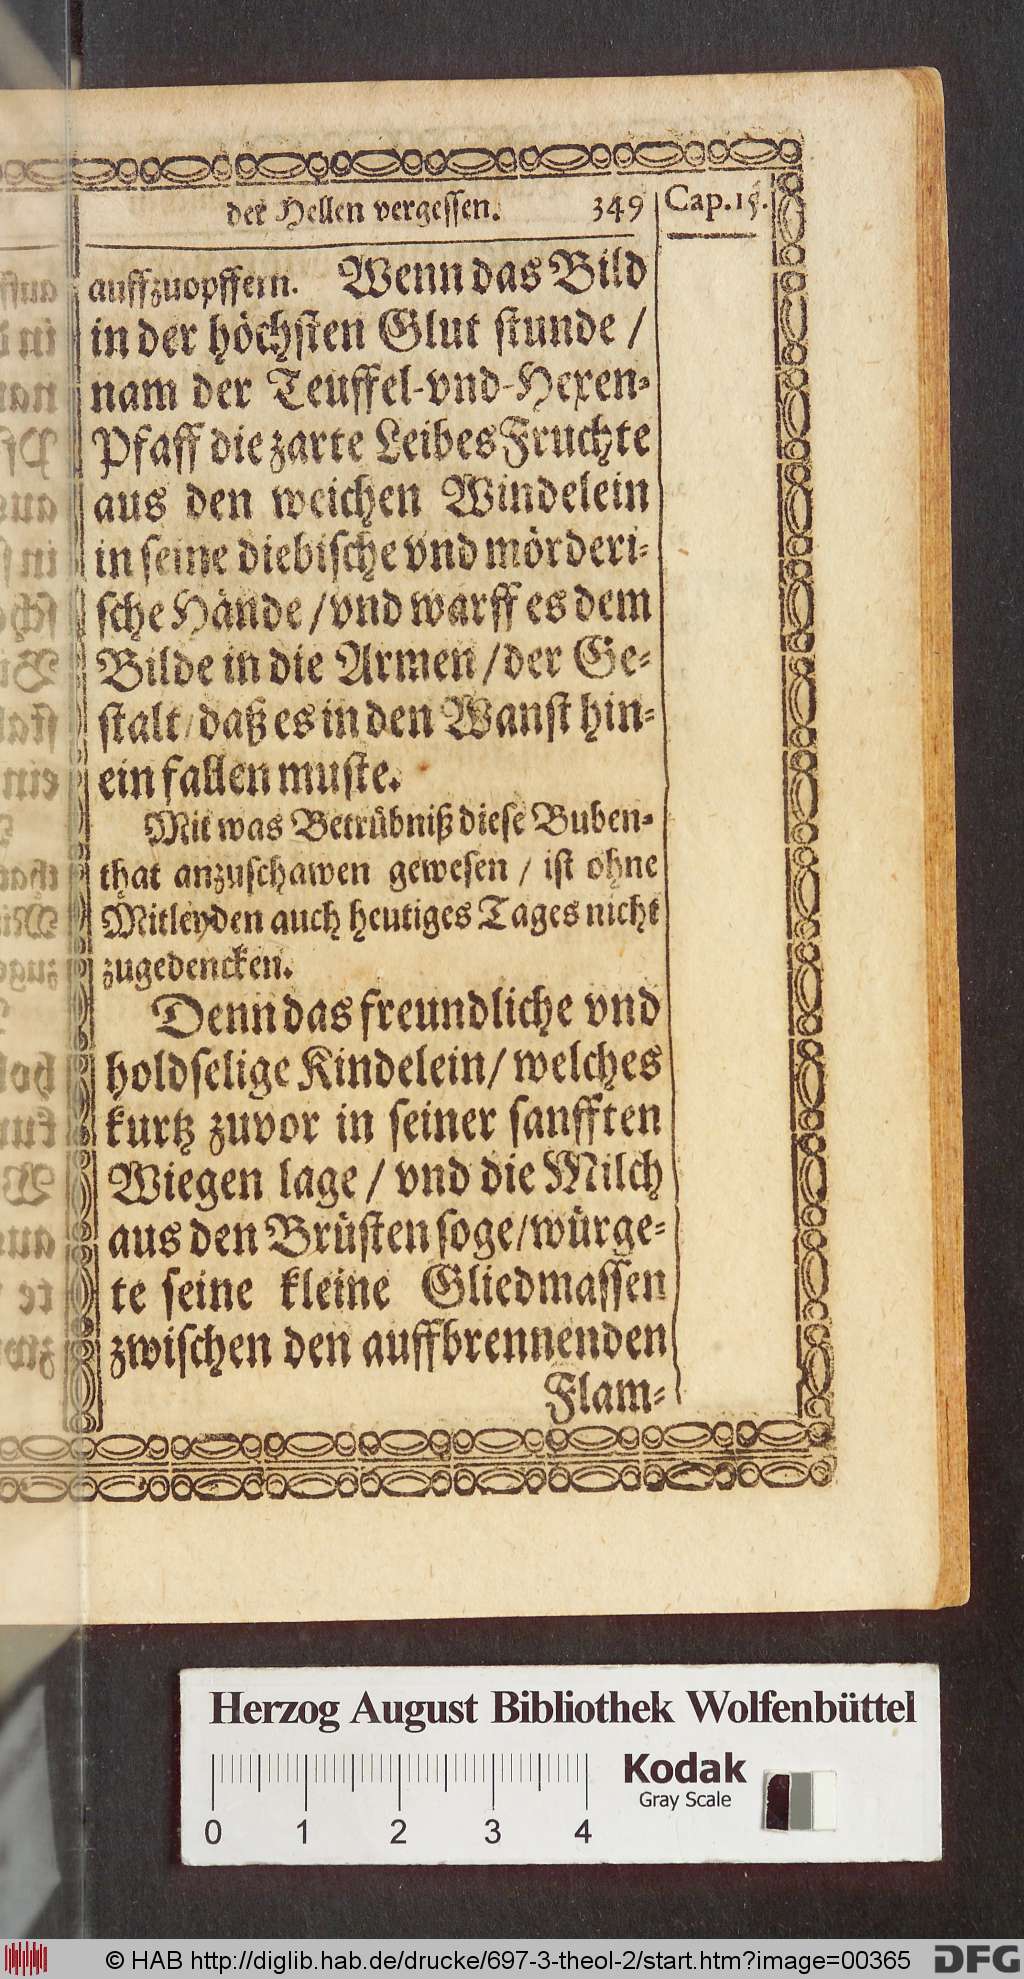 der Hellen vergessen. 349 Cap. 15.
auffzuopffern. Wenn das Bild
in der höchsten Glut stunde /
nam der Teuffel-vnd-Hexen-
Pfaff die zarte Leibes Fruchte
aus den weichen Windelein
in seine diebische vnd mörderi-
sche Hände / vnd warff es dem
Bilde in die Armen / der Ge-
stalt / daß es in den Wanst hin-
ein fallen muste.
Mit was Betrübniß diese Buben-
that anzuschawen gewesen / ist ohne
Mitleyden auch heutiges Tages nicht
zugedencken.
Denn das freundliche vnd
holdselige Kindelein / welches
kurtz zuvor in seiner sanfften
Wiegen lage / vnd die Milch
aus den Brüsten soge / würge-
te seine kleine Gliedmassen
zwischen den auffbrennenden
Flam-
Herzog August Bibliothek Wolfenbüttel
Kodak
Gray Scale
0 1 2 3 4
© HAB http://diglib.hab.de/drucke/697-3-theol-2/start.htm?image=00365 DFG